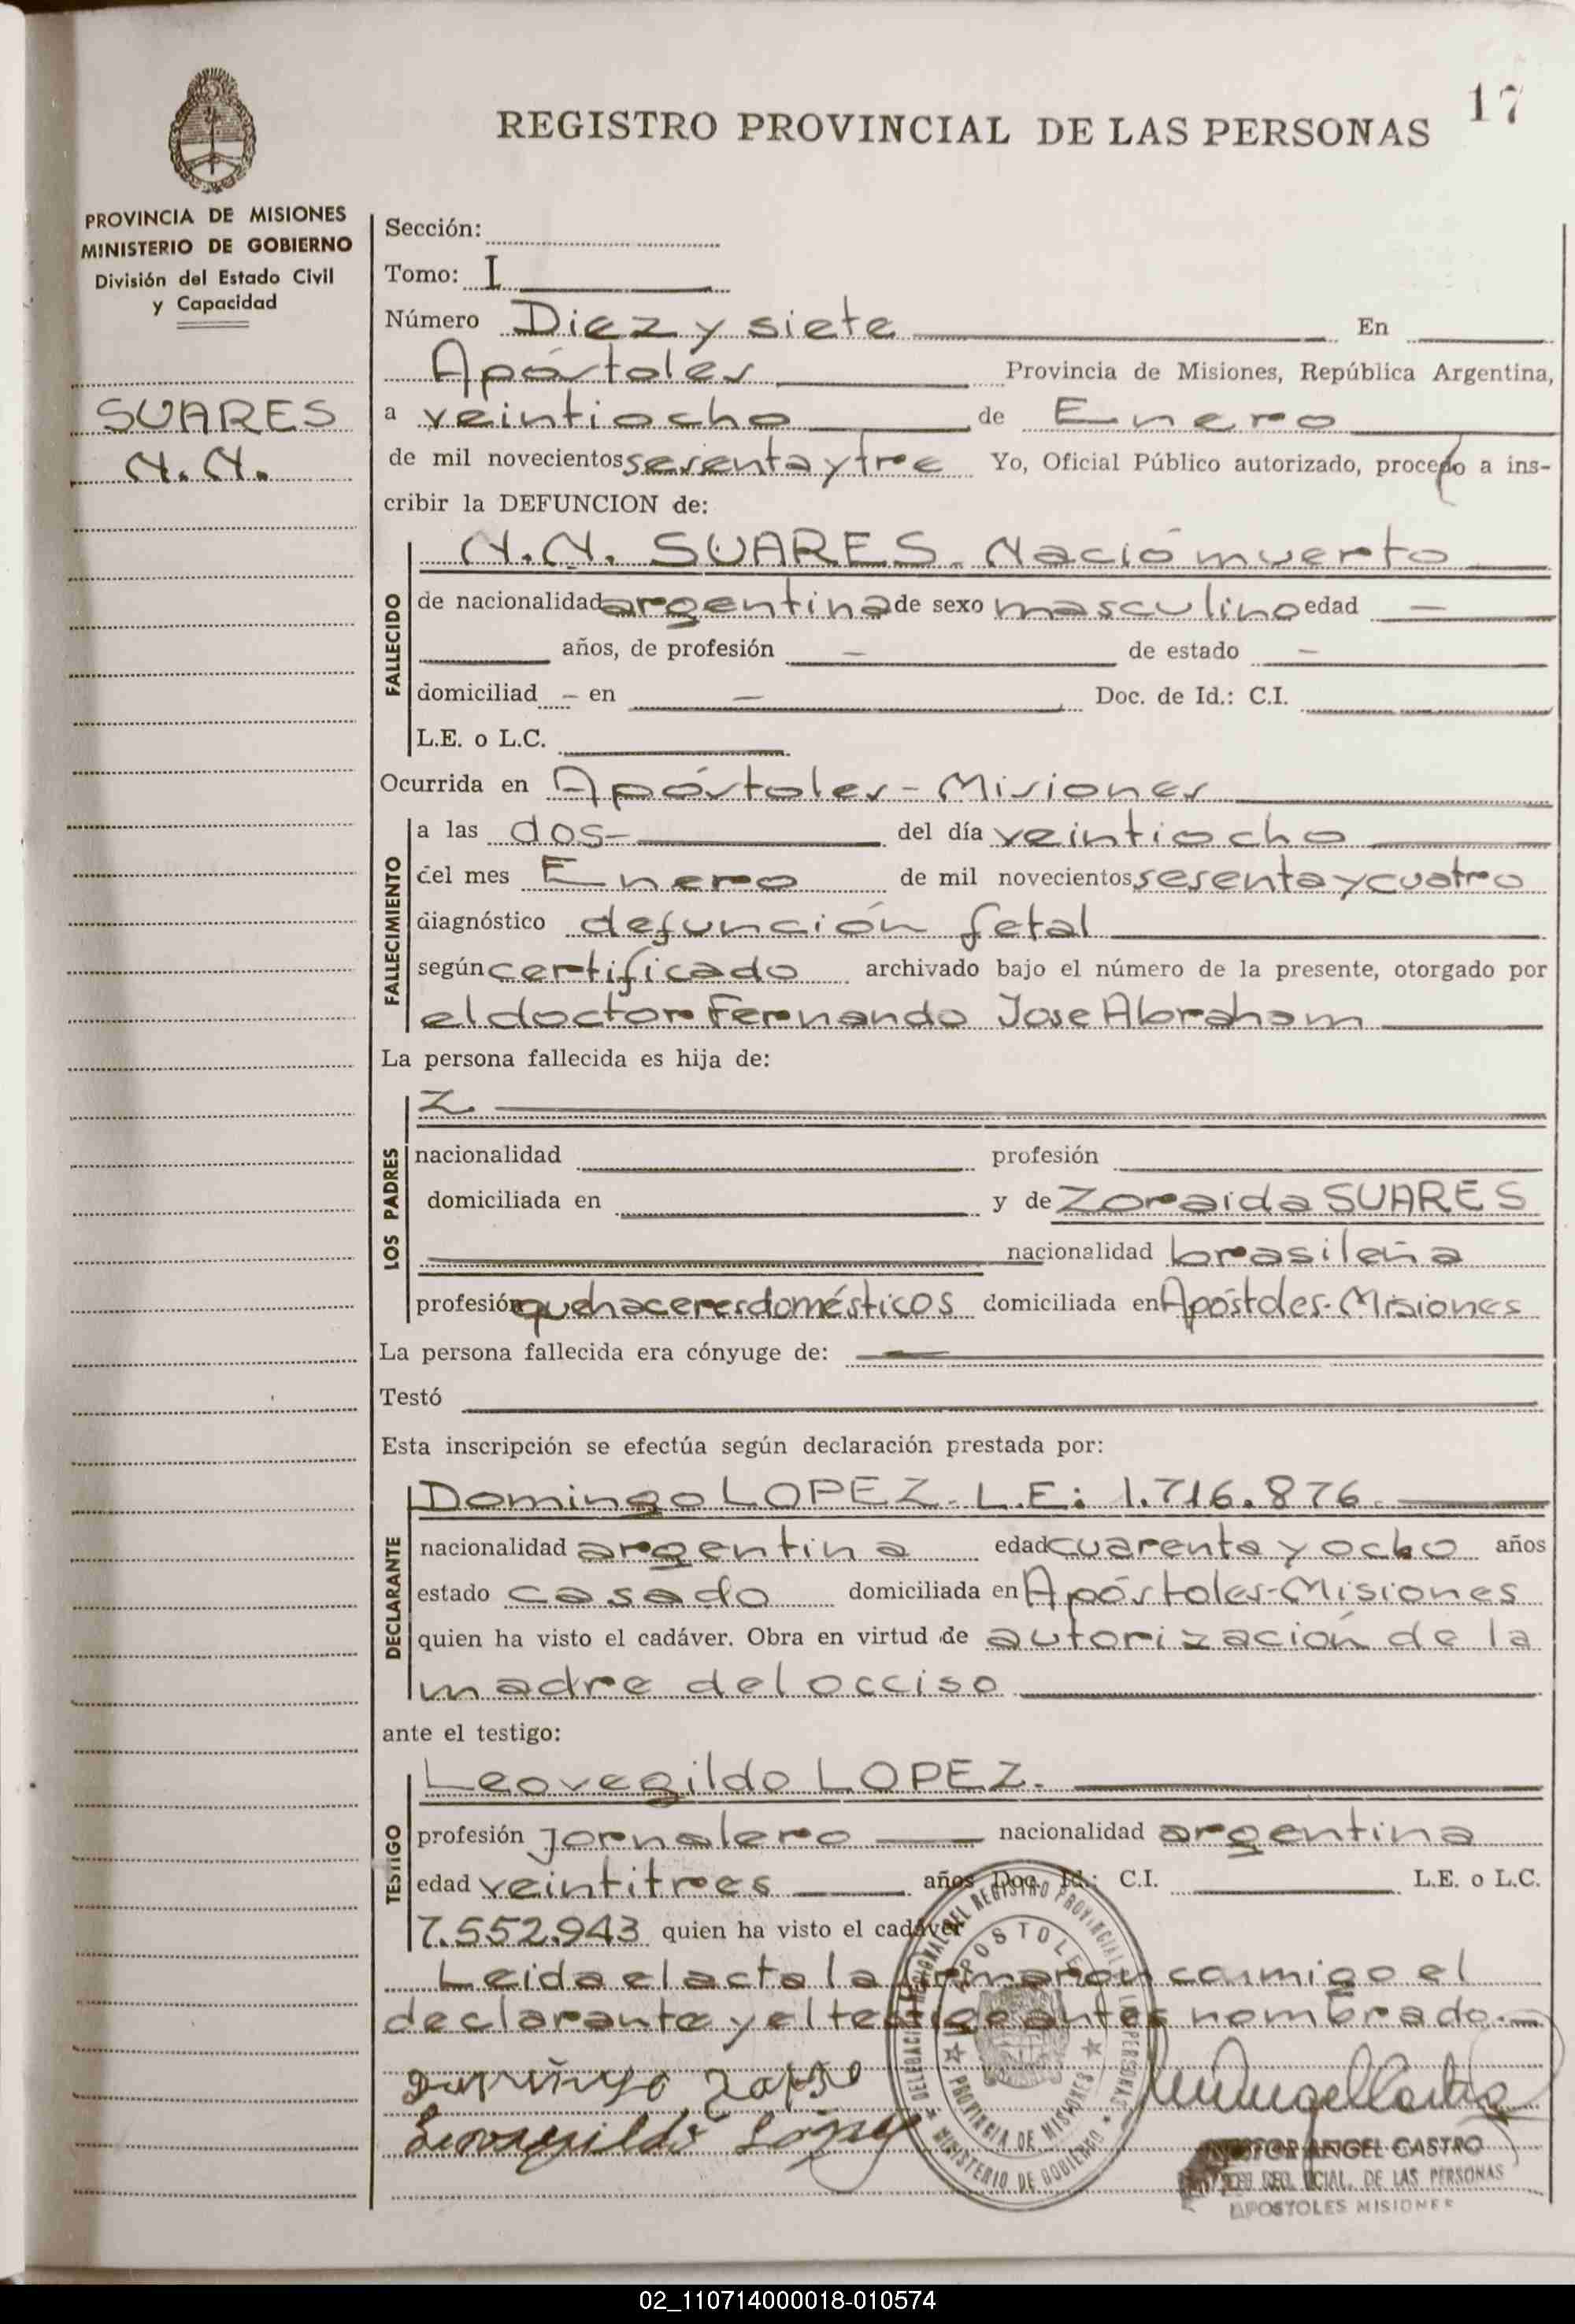 17
REGISTRO PROVINCIAL DE LAS PERSONAS
PROVINCIA DE MISIONES
MINISTERIO DE GOBIERNO
División del Estado Civil
y Capacidad
SUARES
N.N.
Sección:
Tomo: I
Número Diez y siete En
Apóstoles Provincia de Misiones, República Argentina,
a veintiocho de Enero
de mil novecientos sesenta y tre Yo, Oficial Público autorizado, procedo a ins-
cribir la DEFUNCION de:
FALLECIDO
N.N. SUARES. Nació muerto
de nacionalidad argentina de sexo masculino edad —
años, de profesión — de estado —
domiciliad – en — Doc. de Id.: C.I.
L.E. o L.C.
Ocurrida en Apóstoles - Misiones
FALLECIMIENTO
a las dos- del día veintiocho
del mes Enero de mil novecientos sesenta y cuatro
diagnóstico defunción fetal
según certificado archivado bajo el número de la presente, otorgado por
el doctor Fernando Jose Abraham
La persona fallecida es hija de:
LOS PADRES
Z
nacionalidad profesión
domiciliada en y de Zoraida SUARES
nacionalidad brasileña
profesión quehaceres domésticos domiciliada en Apóstoles-Misiones
La persona fallecida era cónyuge de: —
Testó
Esta inscripción se efectúa según declaración prestada por:
DECLARANTE
Domingo LOPEZ. L.E: 1.716.876.
nacionalidad argentina edad cuarenta y ocho años
estado casado domiciliada en Apóstoles-Misiones
quien ha visto el cadáver. Obra en virtud de autorización de la
madre del occiso
ante el testigo:
TESTIGO
Leovegildo LOPEZ.
profesión Jornalero nacionalidad argentina
edad veintitres años Doc. Id.: C.I. L.E. o L.C.
7.552.943 quien ha visto el cadáver
Leida el acta la firmaron conmigo el
declarante y el testigo antes nombrado.-
Leovegildo López
DELEGACION REGIONAL DEL REGISTRO PROVINCIAL DE LAS PERSONAS
APOSTOLES
PROVINCIA DE MISIONES
MINISTERIO DE GOBIERNO
ANGEL CASTRO
DE LAS PERSONAS
APOSTOLES MISIONES
02_110714000018-010574